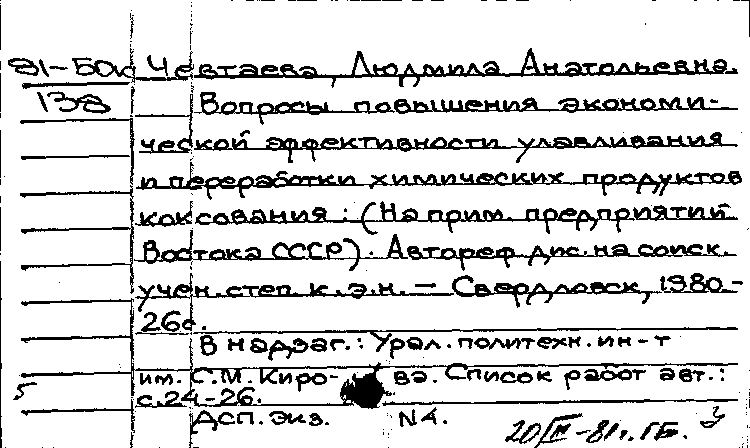 81-50к Чевтаева, Людмила Анатольевна.
138 Вопросы повышения экономи-
ческой эффективности улавливания
и переработки химических продуктов
коксования: (На прим. предприятий
Востока СССР). Автореф. дис. на соиск.
учен. степ. к.э.н. — Свердловск, 1980.-
26с.
В надзаг.: Урал. политехн. ин-т
им. С.М. Киро- ва. Список работ авт.:
5 с.24-26.
ДСП. экз. N4.
20/III-81г. ГБ.